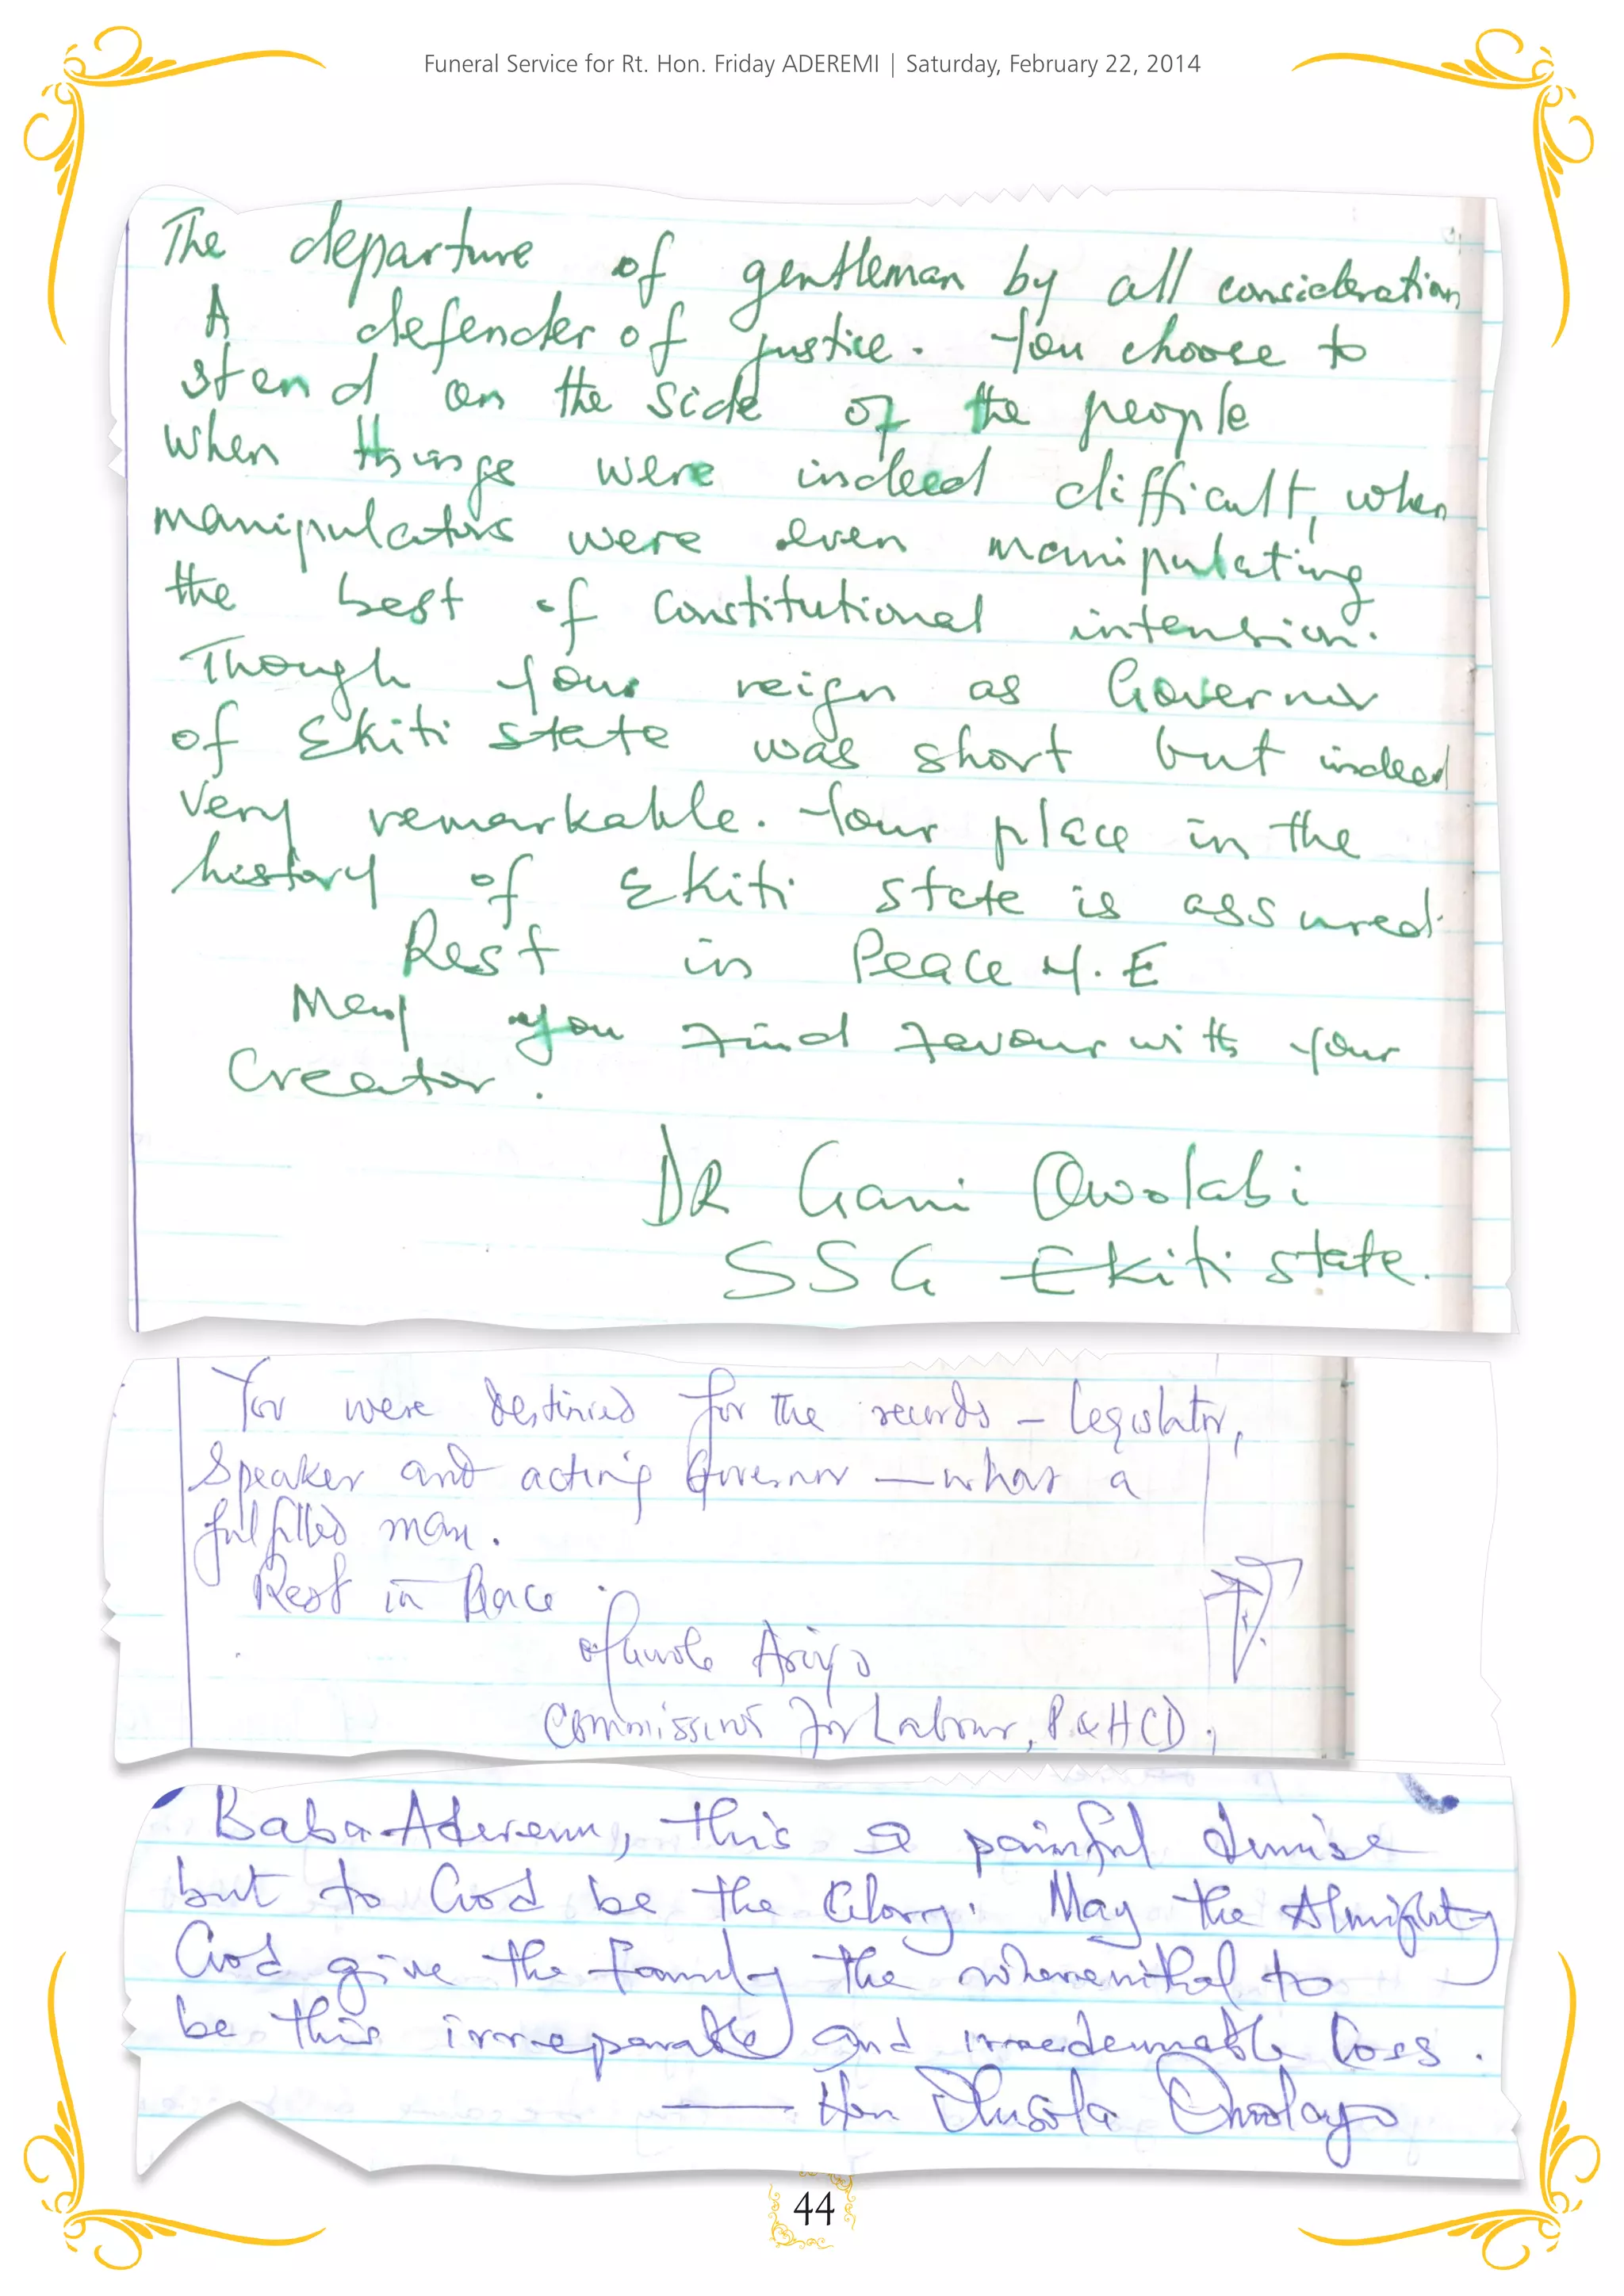 Funeral Service for Rt. Hon. Friday ADEREMI | Saturday, February 22, 2014
The departure of gentleman by all consideration
A defender of justice. You choose to
stand on the side of the people
when things were indeed difficult, when
manipulators were even manipulating
the best of constitutional intension.
Though your reign as Governor
of Ekiti state was short but indeed
very remarkable. Your place in the
history of Ekiti state is assured.
Rest in Peace Y.E
May you find favour with your
Creator.
DR Gani Owolabi
SSG Ekiti state.
You were destined for the records – Legislator,
Speaker and acting Governor — what a
fulfilled man.
Rest in Peace.
Ariyo
Commissioner for Labour, P&HCD.
Baba Aderemi, this a painful demise
but to God be the Glory. May the Almighty
God give the family the wherewithal to
be this irreparable and irredeemable loss.
— Hon Olusola Omolayo
44